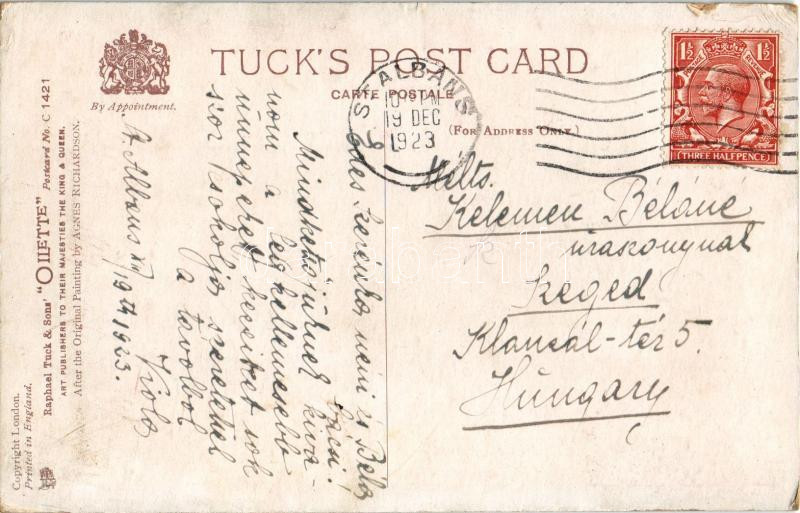 TUCK'S POST CARD
CARTE POSTALE
(FOR ADDRESS ONLY.)
By Appointment.
Copyright London.
Printed in England.
Raphael Tuck & Sons' "OILETTE" Postcard No. C 1421
ART PUBLISHERS TO THEIR MAJESTIES THE KING & QUEEN.
After the Original Painting by AGNES RICHARDSON.
ST ALBANS
10 PM
19 DEC
1923
1½ 1½
POSTAGE REVENUE
(THREE HALFPENCE)
St. Albans XII/19th 1923.
Édes néni és Béla
bácsi!
Mindkettőjüknek kivá-
nom a legkellemesebb
ünnepeket kezeiket sok-
szor csókolja szeretettel
a távolból
Viola
Mélts.
Kelemen Béláné
úraszonynak
Szeged
Klauzál-tér 5.
Hungary